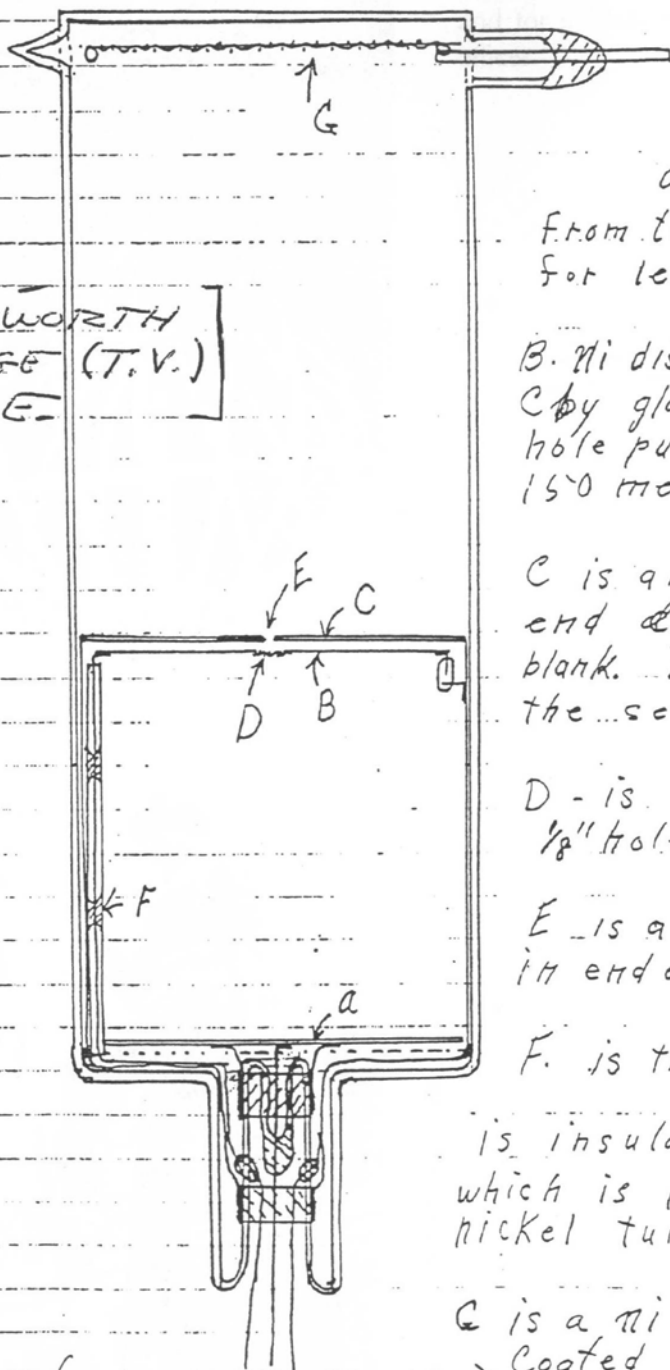 G
WORTH
(T.V.)
E
From t
for le
B. Ni dis
C by gla
hole pu
150 me
E
C
C is a
end
blank.
the se
D
B
D - is
1/8" hol
F
E is a
in end
a
F. is t
is insula
which is
nickel tu
G is a Ni
Coated